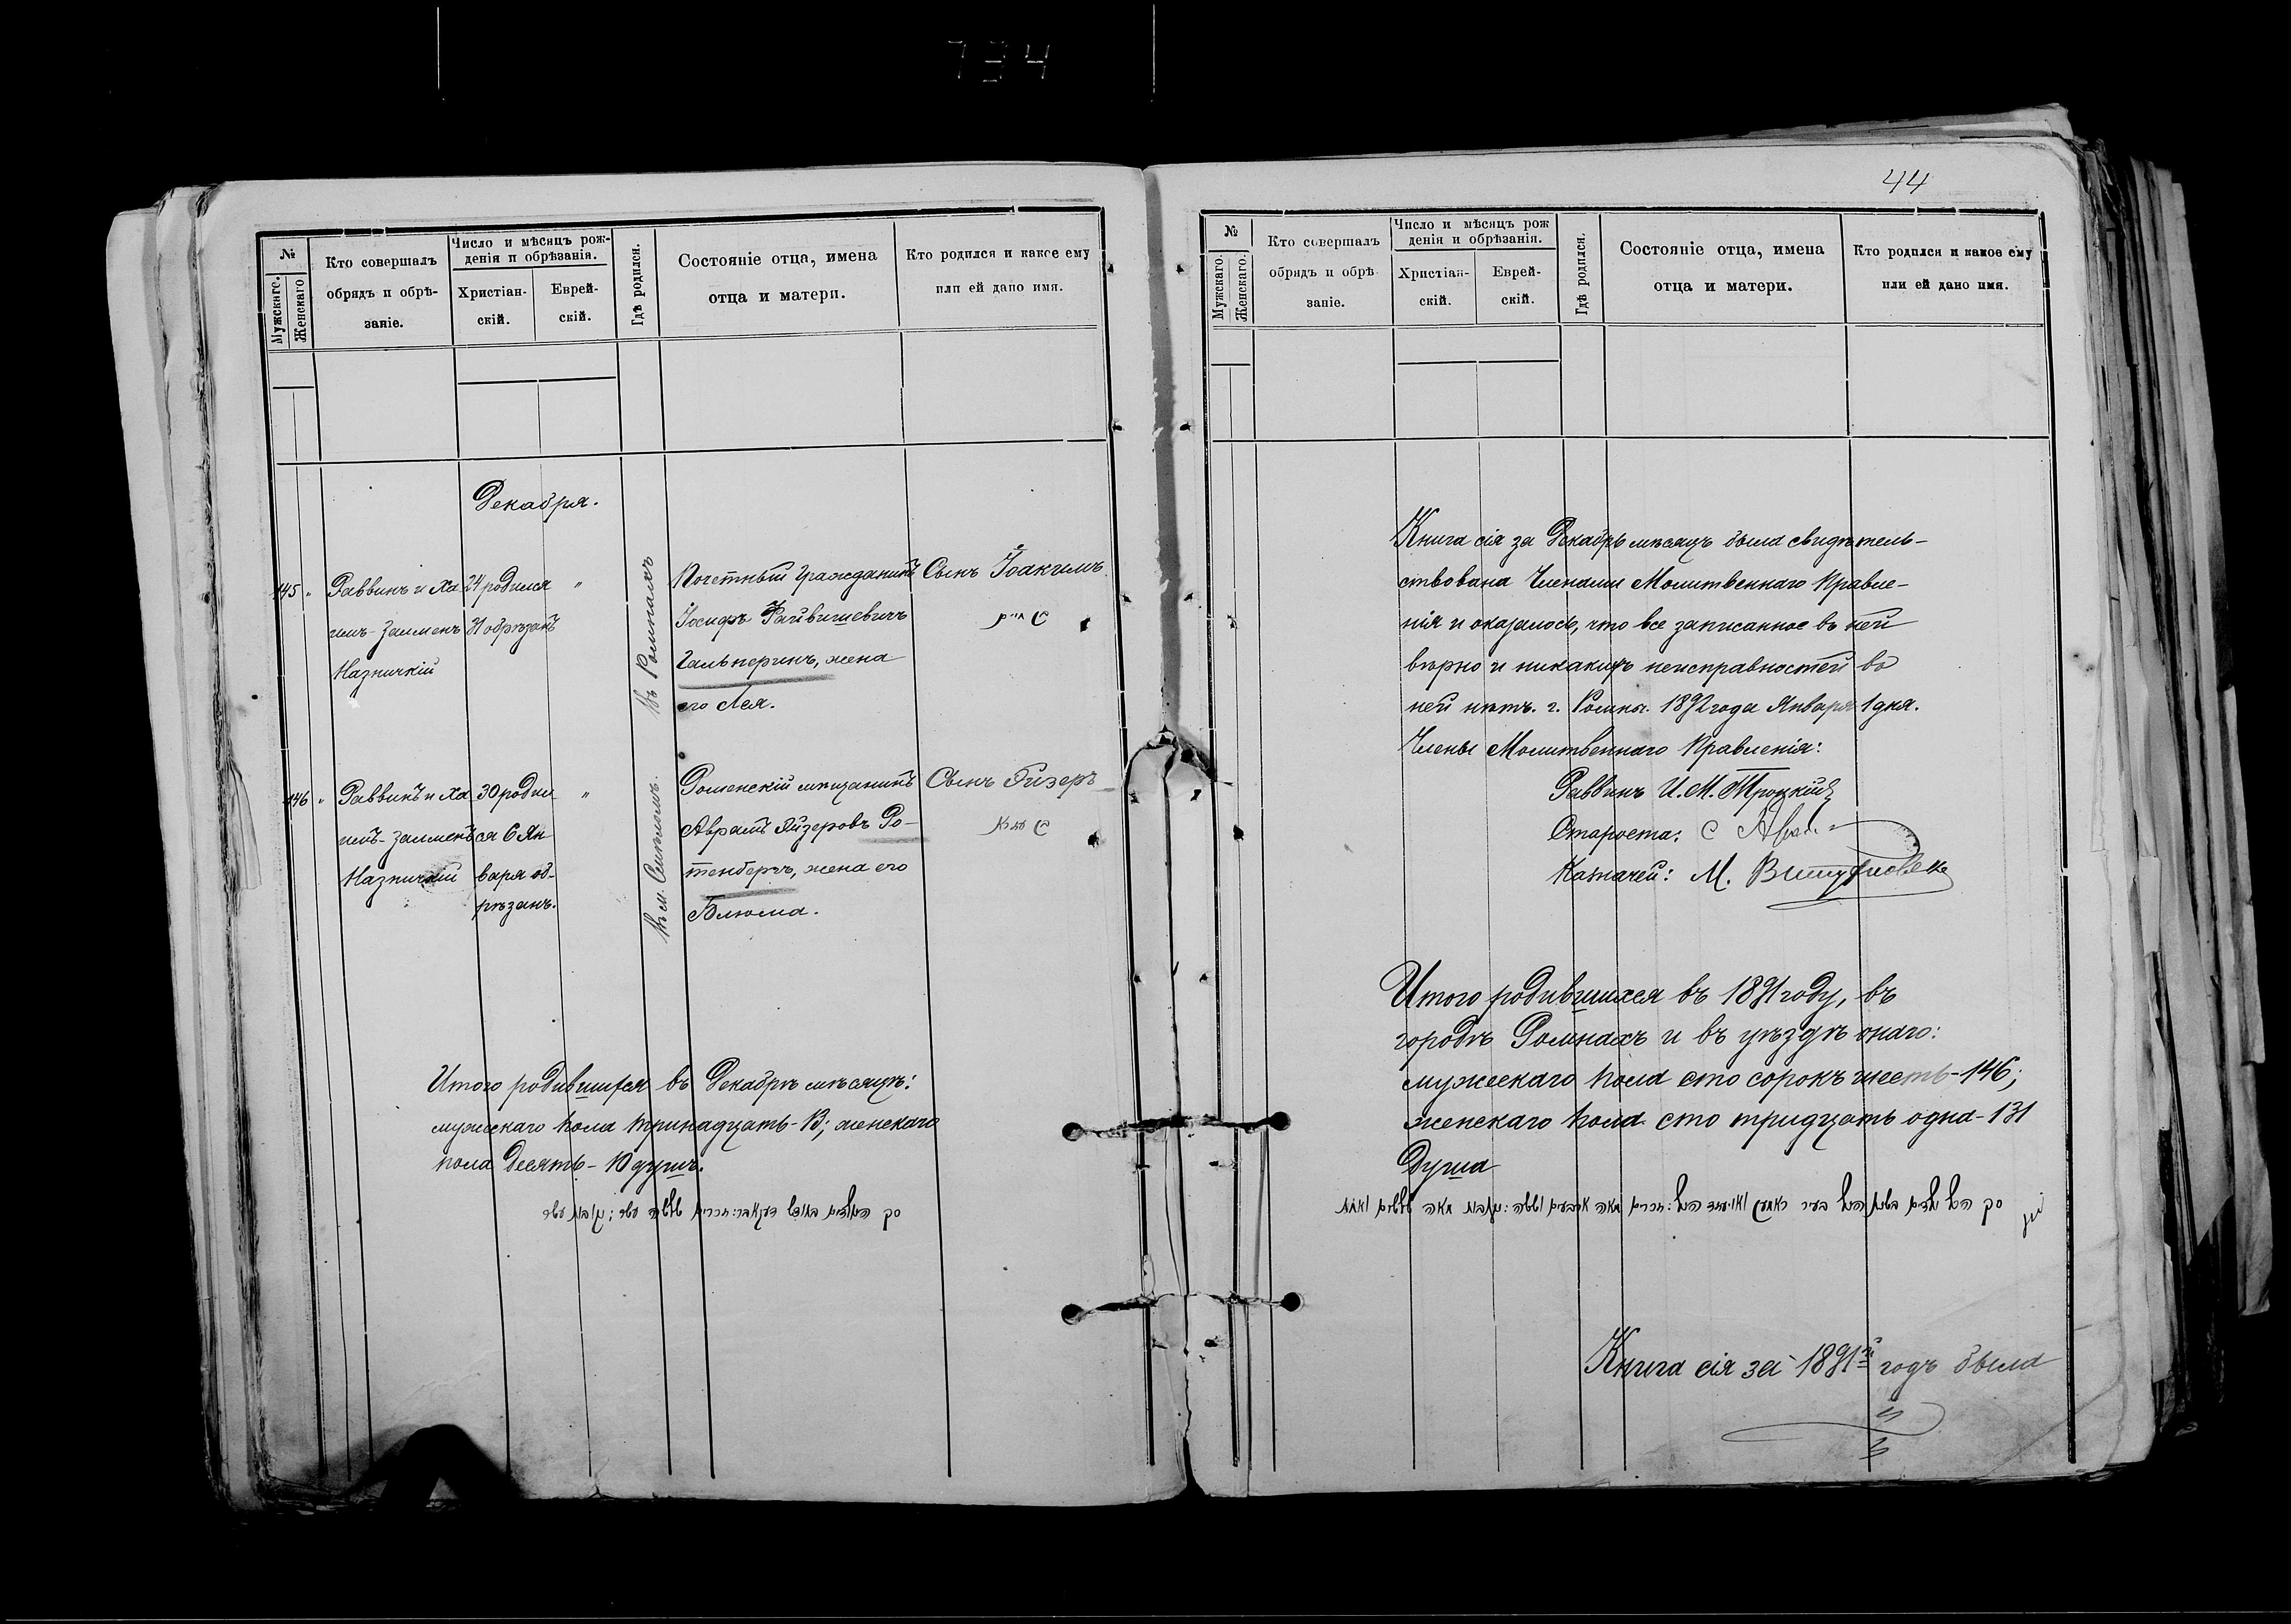 44
№
Мужскаго.
Женскаго.
Кто совершалъ
обрядъ и обрѣ-
заніе.
Число и мѣсяцъ рож-
денія и обрѣзанія.
Христіан-
скій.
Еврей-
скій.
Гдѣ родился.
Состояніе отца, имена
отца и матери.
Кто родился и какое ему
или ей дано имя.
Декабря.
145 "
Раввинъ и Ха
имъ-Залменъ
Назничкій
24 родился
31 обрѣзанъ
"
въ Ромнахъ
Почетный Гражданинъ
Іосифъ Файвишевичъ
Гальперинъ, жена
его Лея.
Сынъ Іоакимъ
146 "
Раввинъ и Ха
имъ-Залменъ
Назничкій
30 родил
ся 6 Ян
варя об-
рѣзанъ.
"
въ м.
Роменскій мѣщанинъ
Аврамъ Лйзеровъ Ро-
тенбергъ, жена его
Блюма.
Сынъ
Итого родившихся въ Декабрѣ мѣсяцѣ:
мужескаго пола тринадцать-13; женскаго
пола десять-10 душъ.
№
Мужскаго.
Женскаго.
Кто совершалъ
обрядъ и обрѣ
заніе.
Число и мѣсяцъ рож
денія и обрѣзанія.
Христіан-
скій.
Еврей-
скій.
Гдѣ родился.
Состояніе отца, имена
отца и матери.
Кто родился и какое ему
или ей дано имя.
Книга сія за Декабрь мѣсяцъ была свидѣтель-
ствована Членами Молитвеннаго Правле-
нія и оказалось, что все записанное въ ней
вѣрно и никакихъ неисправностей въ
ней нѣтъ. г. Ромны. 1892 года Января 1 дня.
Члены Молитвеннаго Правленія:
Раввинъ И. М. Троцкій
Староста: С
Казначей: М.
Итого родившихся въ 1891 году, въ
городѣ Ромнахъ и въ уѣздѣ онаго:
мужескаго пола сто сорокъ шесть-146;
женскаго пола сто тридцать одна-131
душа
Книга сія за 1891й годъ была